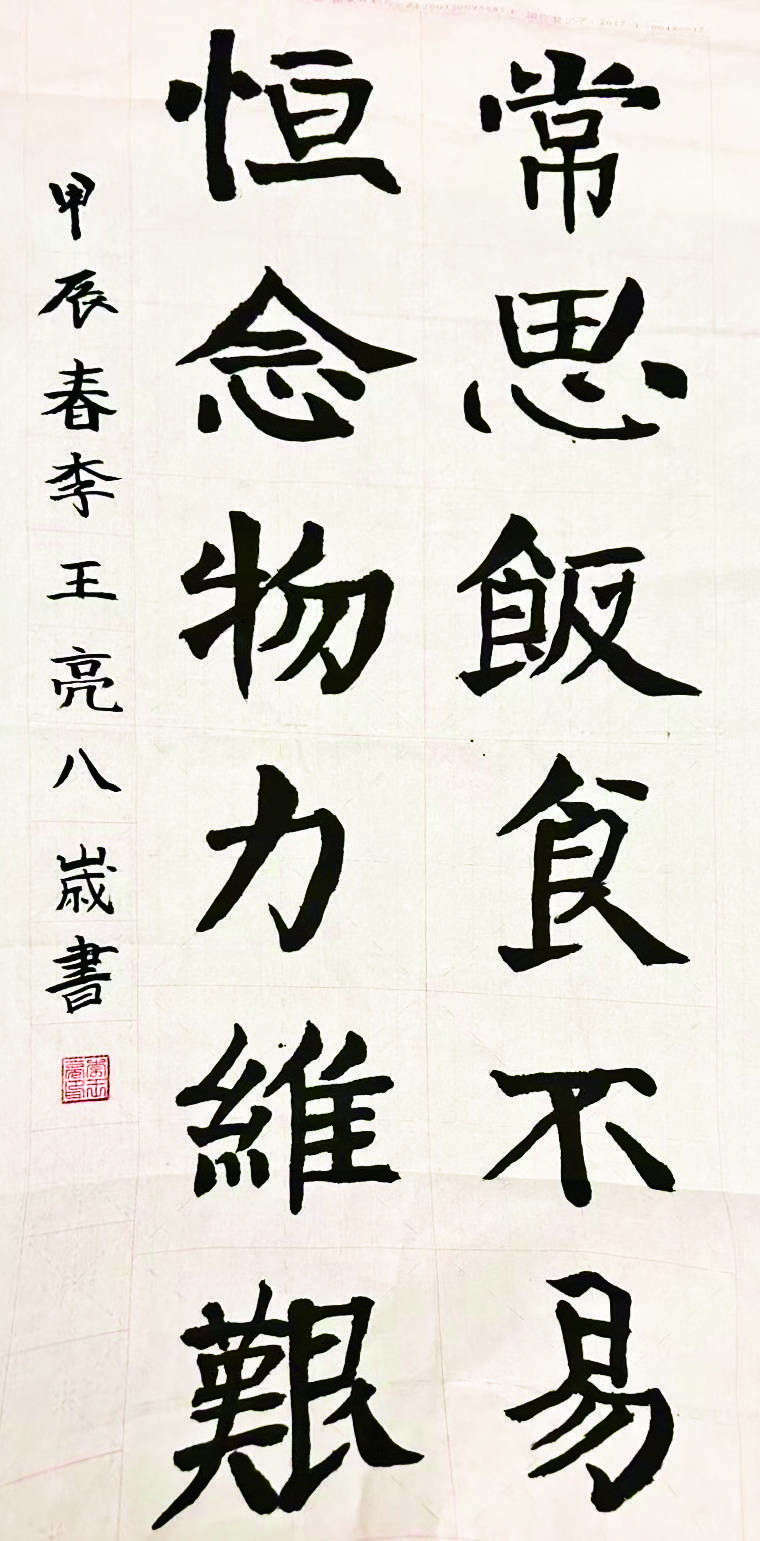 常思飯食不易
恒念物力維艱
甲辰春李王亮八歲書